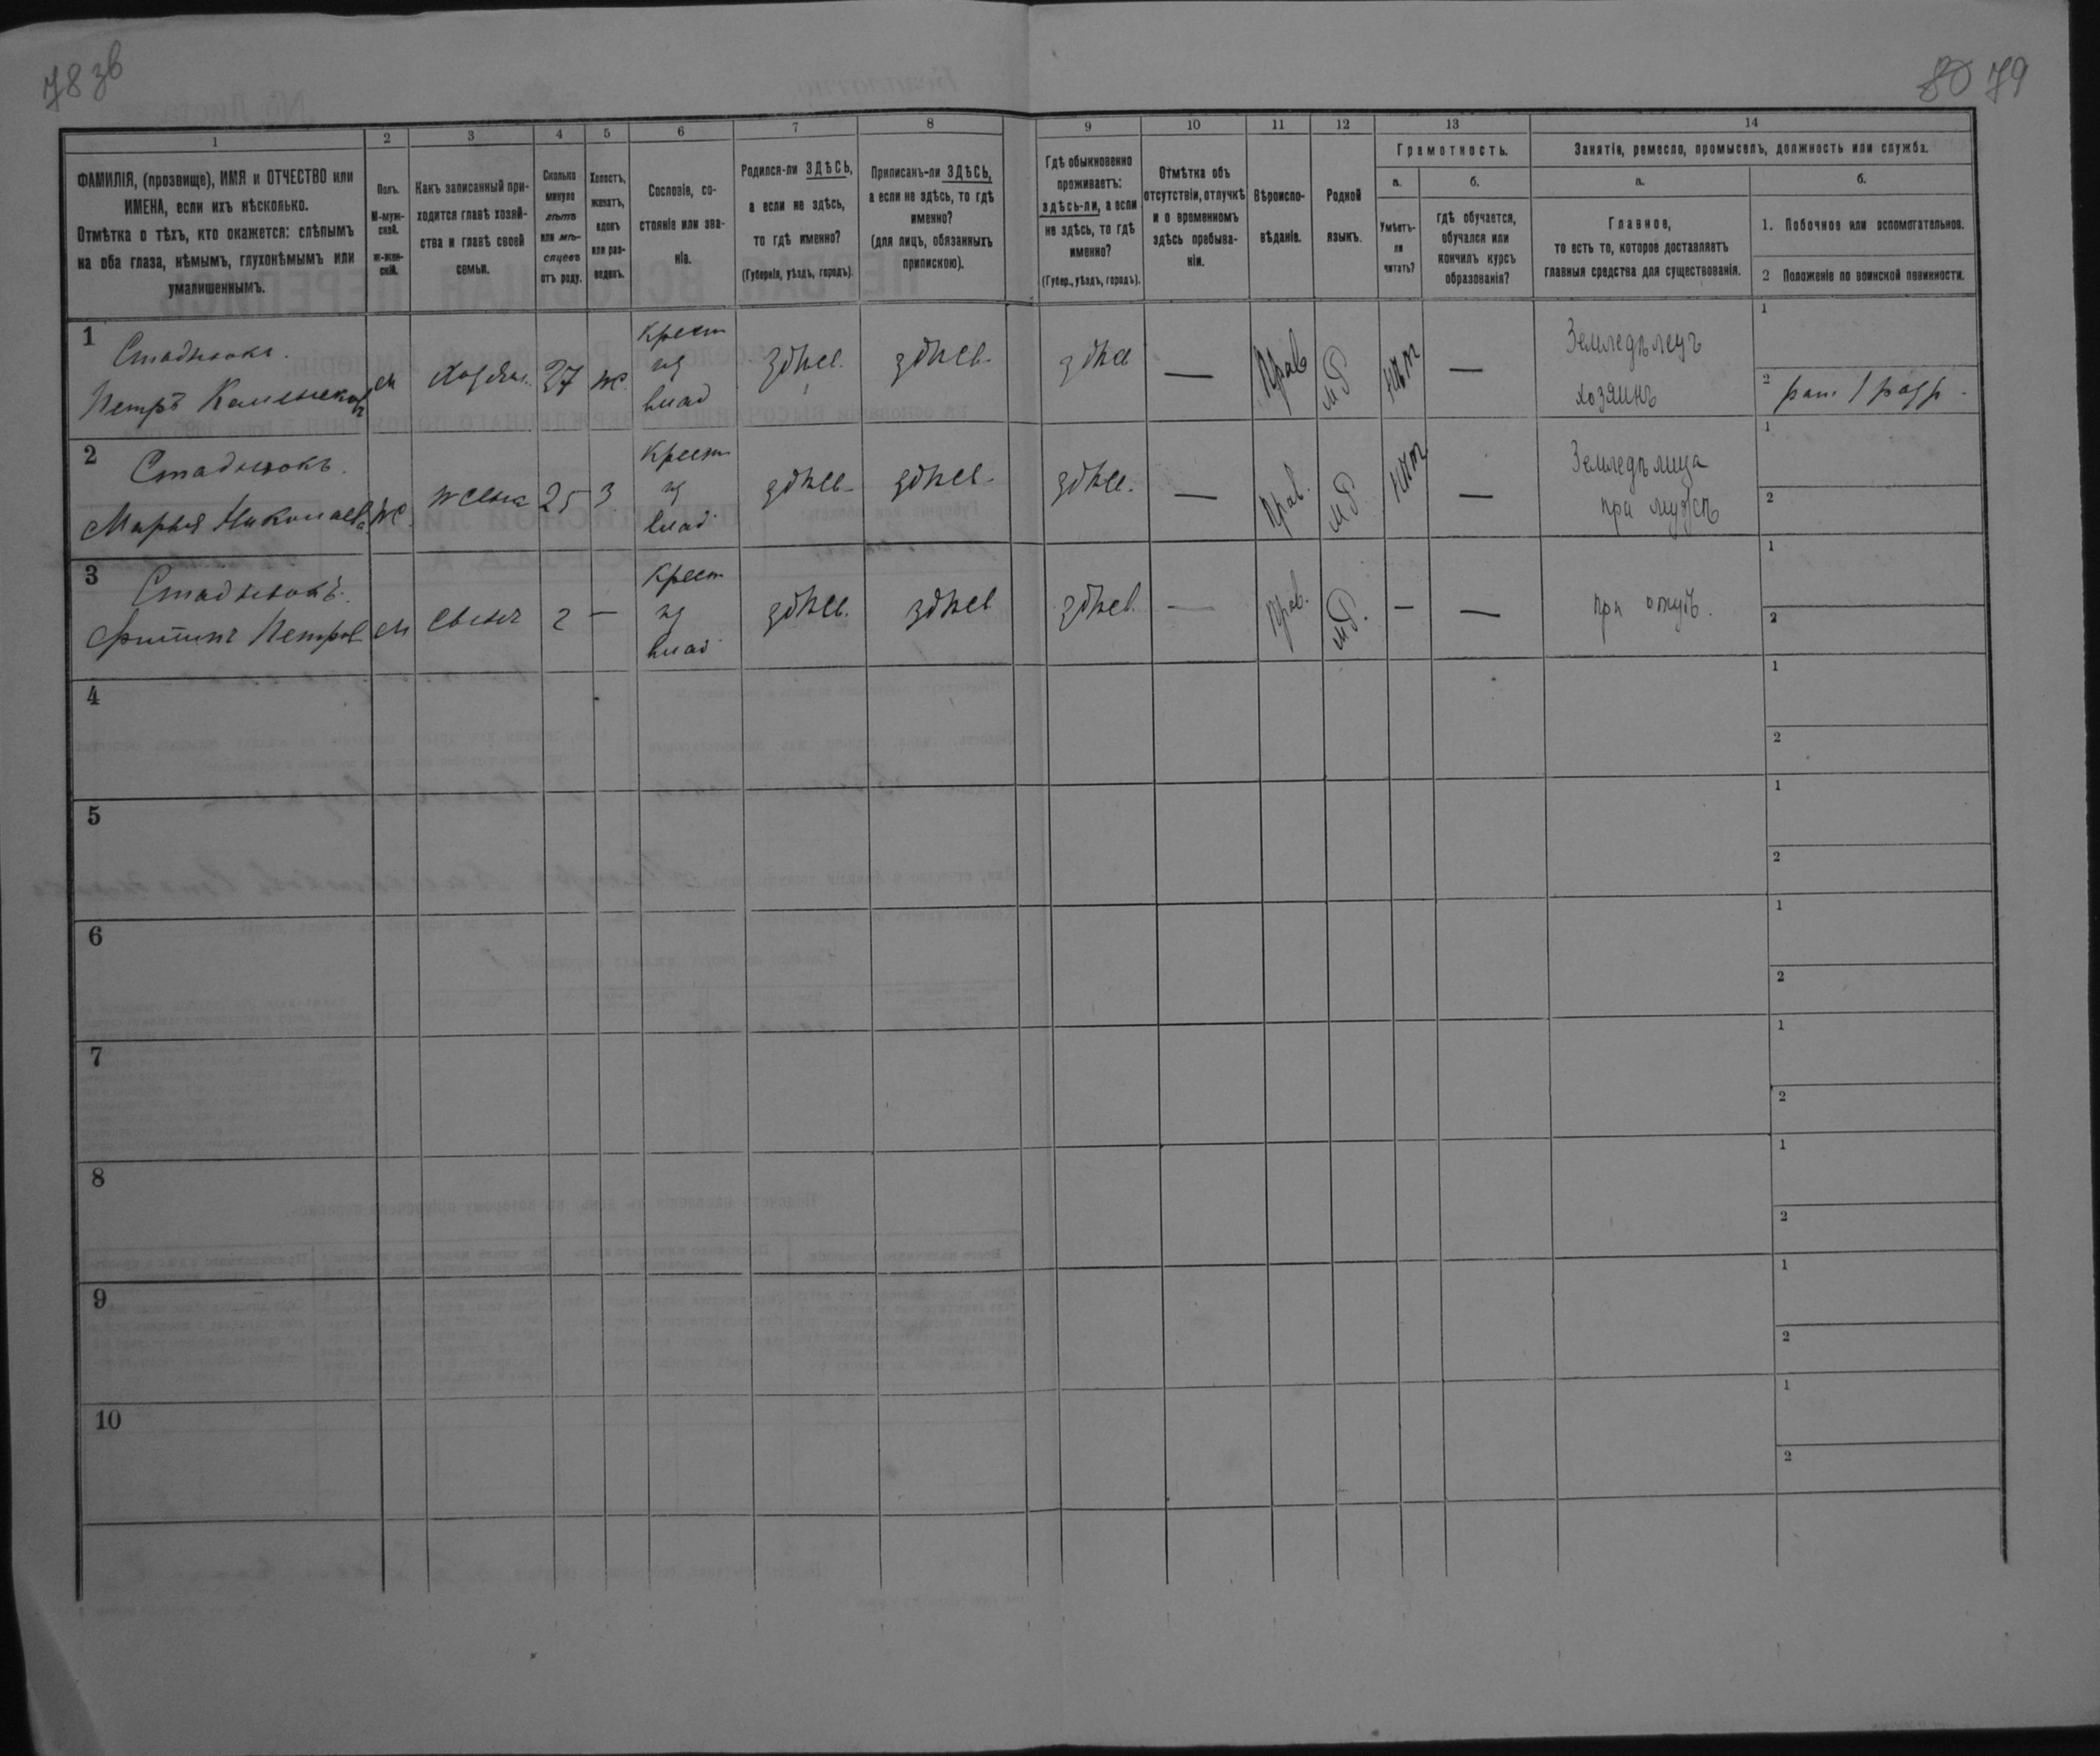 78 зв
80 79
1 2 3 4 5 6 7 8 9 10 11 12 13 14
ФАМИЛІЯ, (прозвище), ИМЯ и ОТЧЕСТВО или
ИМЕНА, если ихъ нѣсколько.
Отмѣтка о тѣхъ, кто окажется: слѣпымъ
на оба глаза, нѣмымъ, глухонѣмымъ или
умалишеннымъ.
Полъ.
М-муж-
ской.
ж-жен-
скій.
Какъ записанный при-
ходится главѣ хозяй-
ства и главѣ своей
семьи.
Сколько
минуло
лѣтъ
или мѣ-
сяцевъ
отъ роду.
Холостъ,
женатъ,
вдовъ
или раз-
веденъ.
Сословіе, со-
стояніе или зва-
ніе.
Родился-ли ЗДѢСЬ,
а если не здѣсь,
то гдѣ именно?
(Губернія, уѣздъ, городъ).
Приписанъ-ли ЗДѢСЬ,
а если не здѣсь, то гдѣ
именно?
(для лицъ, обязанныхъ
припискою).
Гдѣ обыкновенно
проживаетъ:
здѣсь-ли, а если
не здѣсь, то гдѣ
именно?
(Губер., уѣздъ, городъ).
Отмѣтка объ
отсутствіи, отлучкѣ
и о временномъ
здѣсь пребыва-
ніи.
Вѣроиспо-
вѣданіе.
Родной
языкъ.
Грамотность.
а.
Умѣетъ-
ли
читать?
б.
гдѣ обучается,
обучался или
кончилъ курсъ
образованія?
Занятіе, ремесло, промыселъ, должность или служба.
а.
Главное,
то есть то, которое доставляетъ
главныя средства для существованія.
б.
1. Побочное или вспомогательное.
2 Положеніе по воинской повинности.
1
Стаднюкъ.
Петръ
м хозяин. 27 ж.
Крест
из
влад
здѣсь здѣсь здѣсь — Прав мР нѣт —
Земледѣлецъ
хозяинъ
1
2 рат 1 разр.
2
Стаднюкъ.
Марья Николаева
ж жена 25 з
Крест
из
влад
здѣсь здѣсь здѣсь. — Прав. мР. нѣт —
Земледѣлица
при мужѣ
1
2
3
Стаднюкъ.
Петров
м сынъ 2 —
Крест
из
влад
здѣсь здѣсь здѣсь — Прав. мР. — —
при отцѣ.
1
2
4
1
2
5
1
2
6
1
2
7
1
2
8
1
2
9
1
2
10
1
2